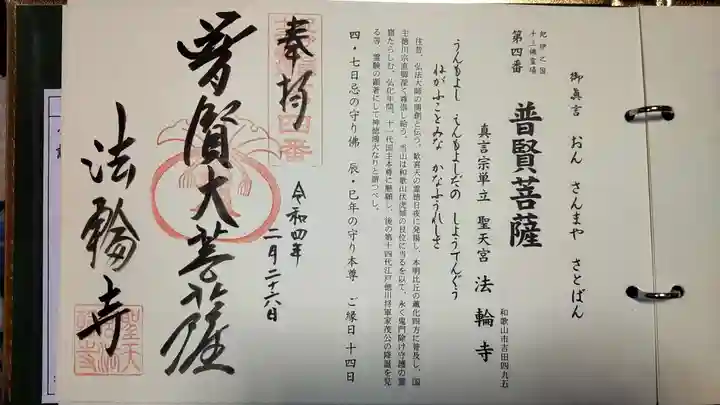 御真言 おん さんまや さとばん
紀伊之国
十三佛霊場
第四番
普賢菩薩
和歌山市吉田四九五
真言宗単立 聖天宮 法輪寺
うんもよし えんもよしだの しようてんぐう
ねがふことみな かなふうれしさ
往昔、弘法大師の開創と伝う。歓喜天の霊徳日夜に発揚し、本明比丘の薫化四方に普及し、国
主徳川宗直卿深く尊崇し給う。当山は和歌山伏虎城の艮位に当るを以て、永く鬼門除け守護の霊
窟たらしむ。弘化年間、十一代国主本尊に懇願し、後の第十四代江戸徳川将軍家茂公の降誕を見
る等、霊験の顕著にして神徳鴻大なりと謂つべし。
四・七日忌の守り佛 辰・巳年の守り本尊 ご縁日十四日
奉拝
四番
令和四年
二月二十六日
普賢大菩薩
法輪寺